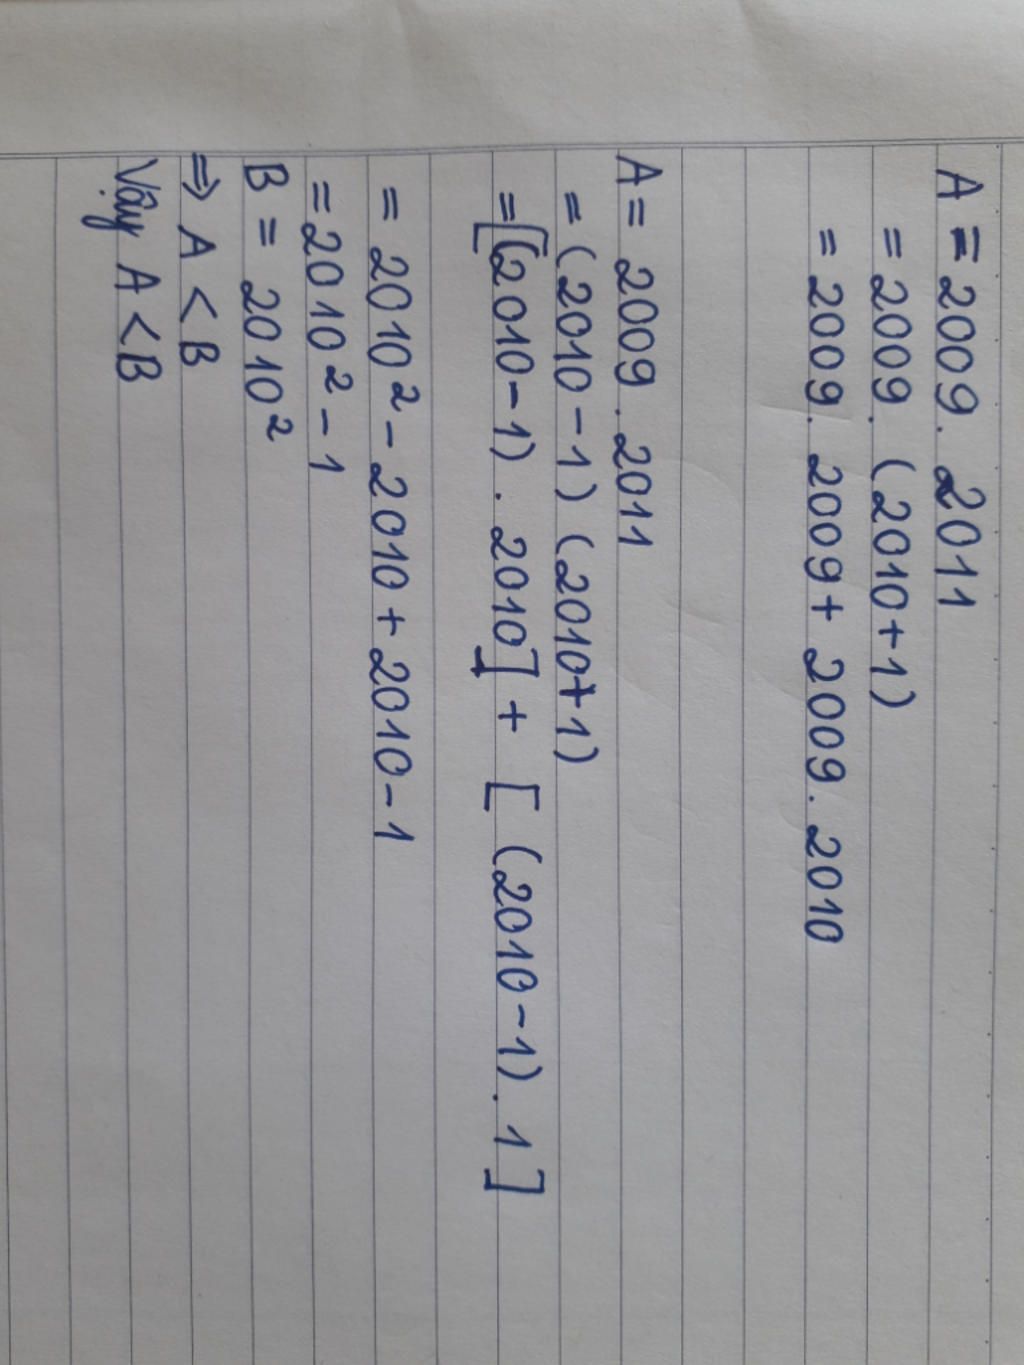 A = 2009. 2011
= 2009. (2010+1)
= 2009. 2009+ 2009. 2010
A = 2009 . 2011
= (2010 - 1) (2010+1)
= [(2010-1) . 2010] + [ (2010-1). 1 ]
= 2010² - 2010 + 2010 - 1
= 2010² - 1
B = 2010²
⇒ A < B
Vậy A < B